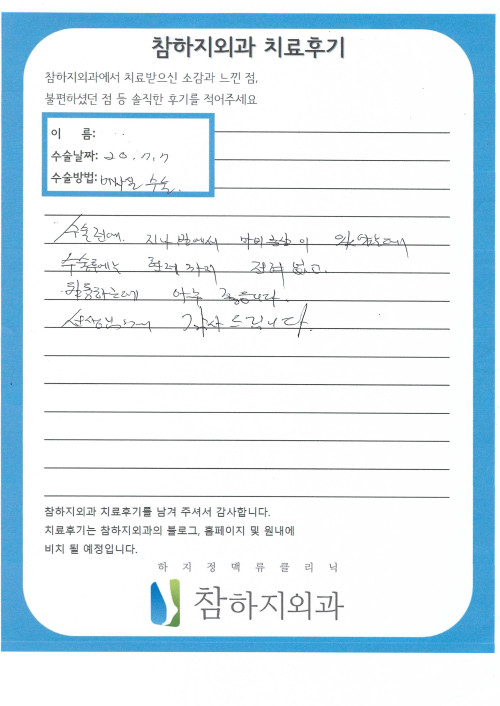 참하지외과 치료후기
참하지외과에서 치료받으신 소감과 느낀 점,
불편하셨던 점 등 솔직한 후기를 적어주세요
이 름:
수술날짜: 20.7.7
수술방법: 수술.
수술전에. 지나 밤에서 마비증상이
수술후에는 전혀 없고.
활동하는데 아주 좋습니다.
선생님께 감사드립니다.
참하지외과 치료후기를 남겨 주셔서 감사합니다.
치료후기는 참하지외과의 블로그, 홈페이지 및 원내에
비치 될 예정입니다.
하지정맥류클리닉
참하지외과